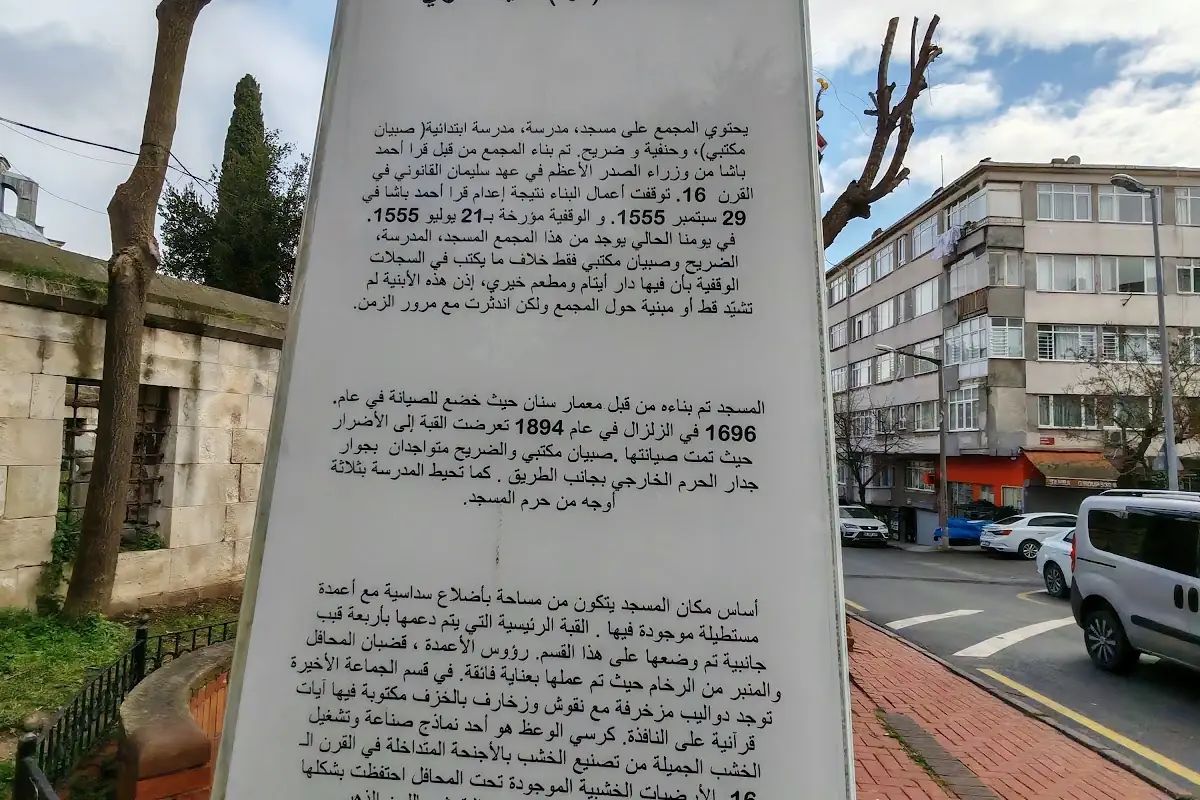 يحتوي المجمع على مسجد، مدرسة، مدرسة ابتدائية( صبيان
مكتبي)، وحنفية و ضريح. تم بناء المجمع من قبل قرا أحمد
باشا من وزراء الصدر الأعظم في عهد سليمان القانوني في
القرن 16. توقفت أعمال البناء نتيجة إعدام قرا أحمد باشا في
29 سبتمبر 1555. و الوقفية مؤرخة بـ21 يوليو 1555.
في يومنا الحالي يوجد من هذا المجمع المسجد، المدرسة،
الضريح وصبيان مكتبي فقط خلاف ما يكتب في السجلات
الوقفية بأن فيها دار أيتام ومطعم خيري، إذن هذه الأبنية لم
تشيّد قط أو مبنية حول المجمع ولكن اندثرت مع مرور الزمن.
المسجد تم بناءه من قبل معمار سنان حيث خضع للصيانة في عام.
1696 في الزلزال في عام 1894 تعرضت القبة إلى الأضرار
حيث تمت صيانتها .صبيان مكتبي والضريح متواجدان بجوار
جدار الحرم الخارجي بجانب الطريق . كما تحيط المدرسة بثلاثة
أوجه من حرم المسجد.
أساس مكان المسجد يتكون من مساحة بأضلاع سداسية مع أعمدة
مستطيلة موجودة فيها . القبة الرئيسية التي يتم دعمها بأربعة قبب
جانبية تم وضعها على هذا القسم. رؤوس الأعمدة ، قضبان المحافل
والمنبر من الرخام حيث تم عملها بعناية فائقة. في قسم الجماعة الأخيرة
توجد دواليب مزخرفة مع نقوش وزخارف بالخزف مكتوبة فيها آيات
قرآنية على النافذة. كرسي الوعظ هو أحد نماذج صناعة وتشغيل
الخشب الجميلة من تصنيع الخشب بالأجنحة المتداخلة في القرن الـ
16. الأرضيات الخشبية الموجودة تحت المحافل احتفظت بشكلها